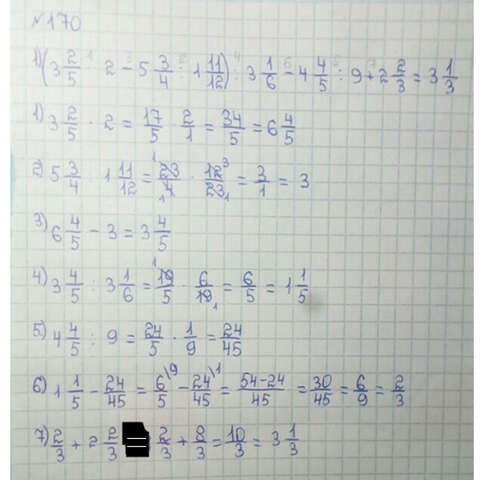 №170
1) (3 2/5 · 2 - 5 3/4 : 1 11/12) : 3 1/6 - 4 4/5 : 9 + 2 2/3 = 3 1/3
1) 3 2/5 · 2 = 17/5 · 2/1 = 34/5 = 6 4/5
2) 5 3/4 · 1 11/12 = 23/4 · 12/23 = 3/1 = 3
3) 6 4/5 - 3 = 3 4/5
4) 3 4/5 : 3 1/6 = 19/5 · 6/19 = 6/5 = 1 1/5
5) 4 4/5 : 9 = 24/5 · 1/9 = 24/45
6) 1 1/5 - 24/45 = 6/5 \9 - 24/45 \1 = 54-24/45 = 30/45 = 6/9 = 2/3
7) 2/3 + 2 2/3 = 2/3 + 8/3 = 10/3 = 3 1/3